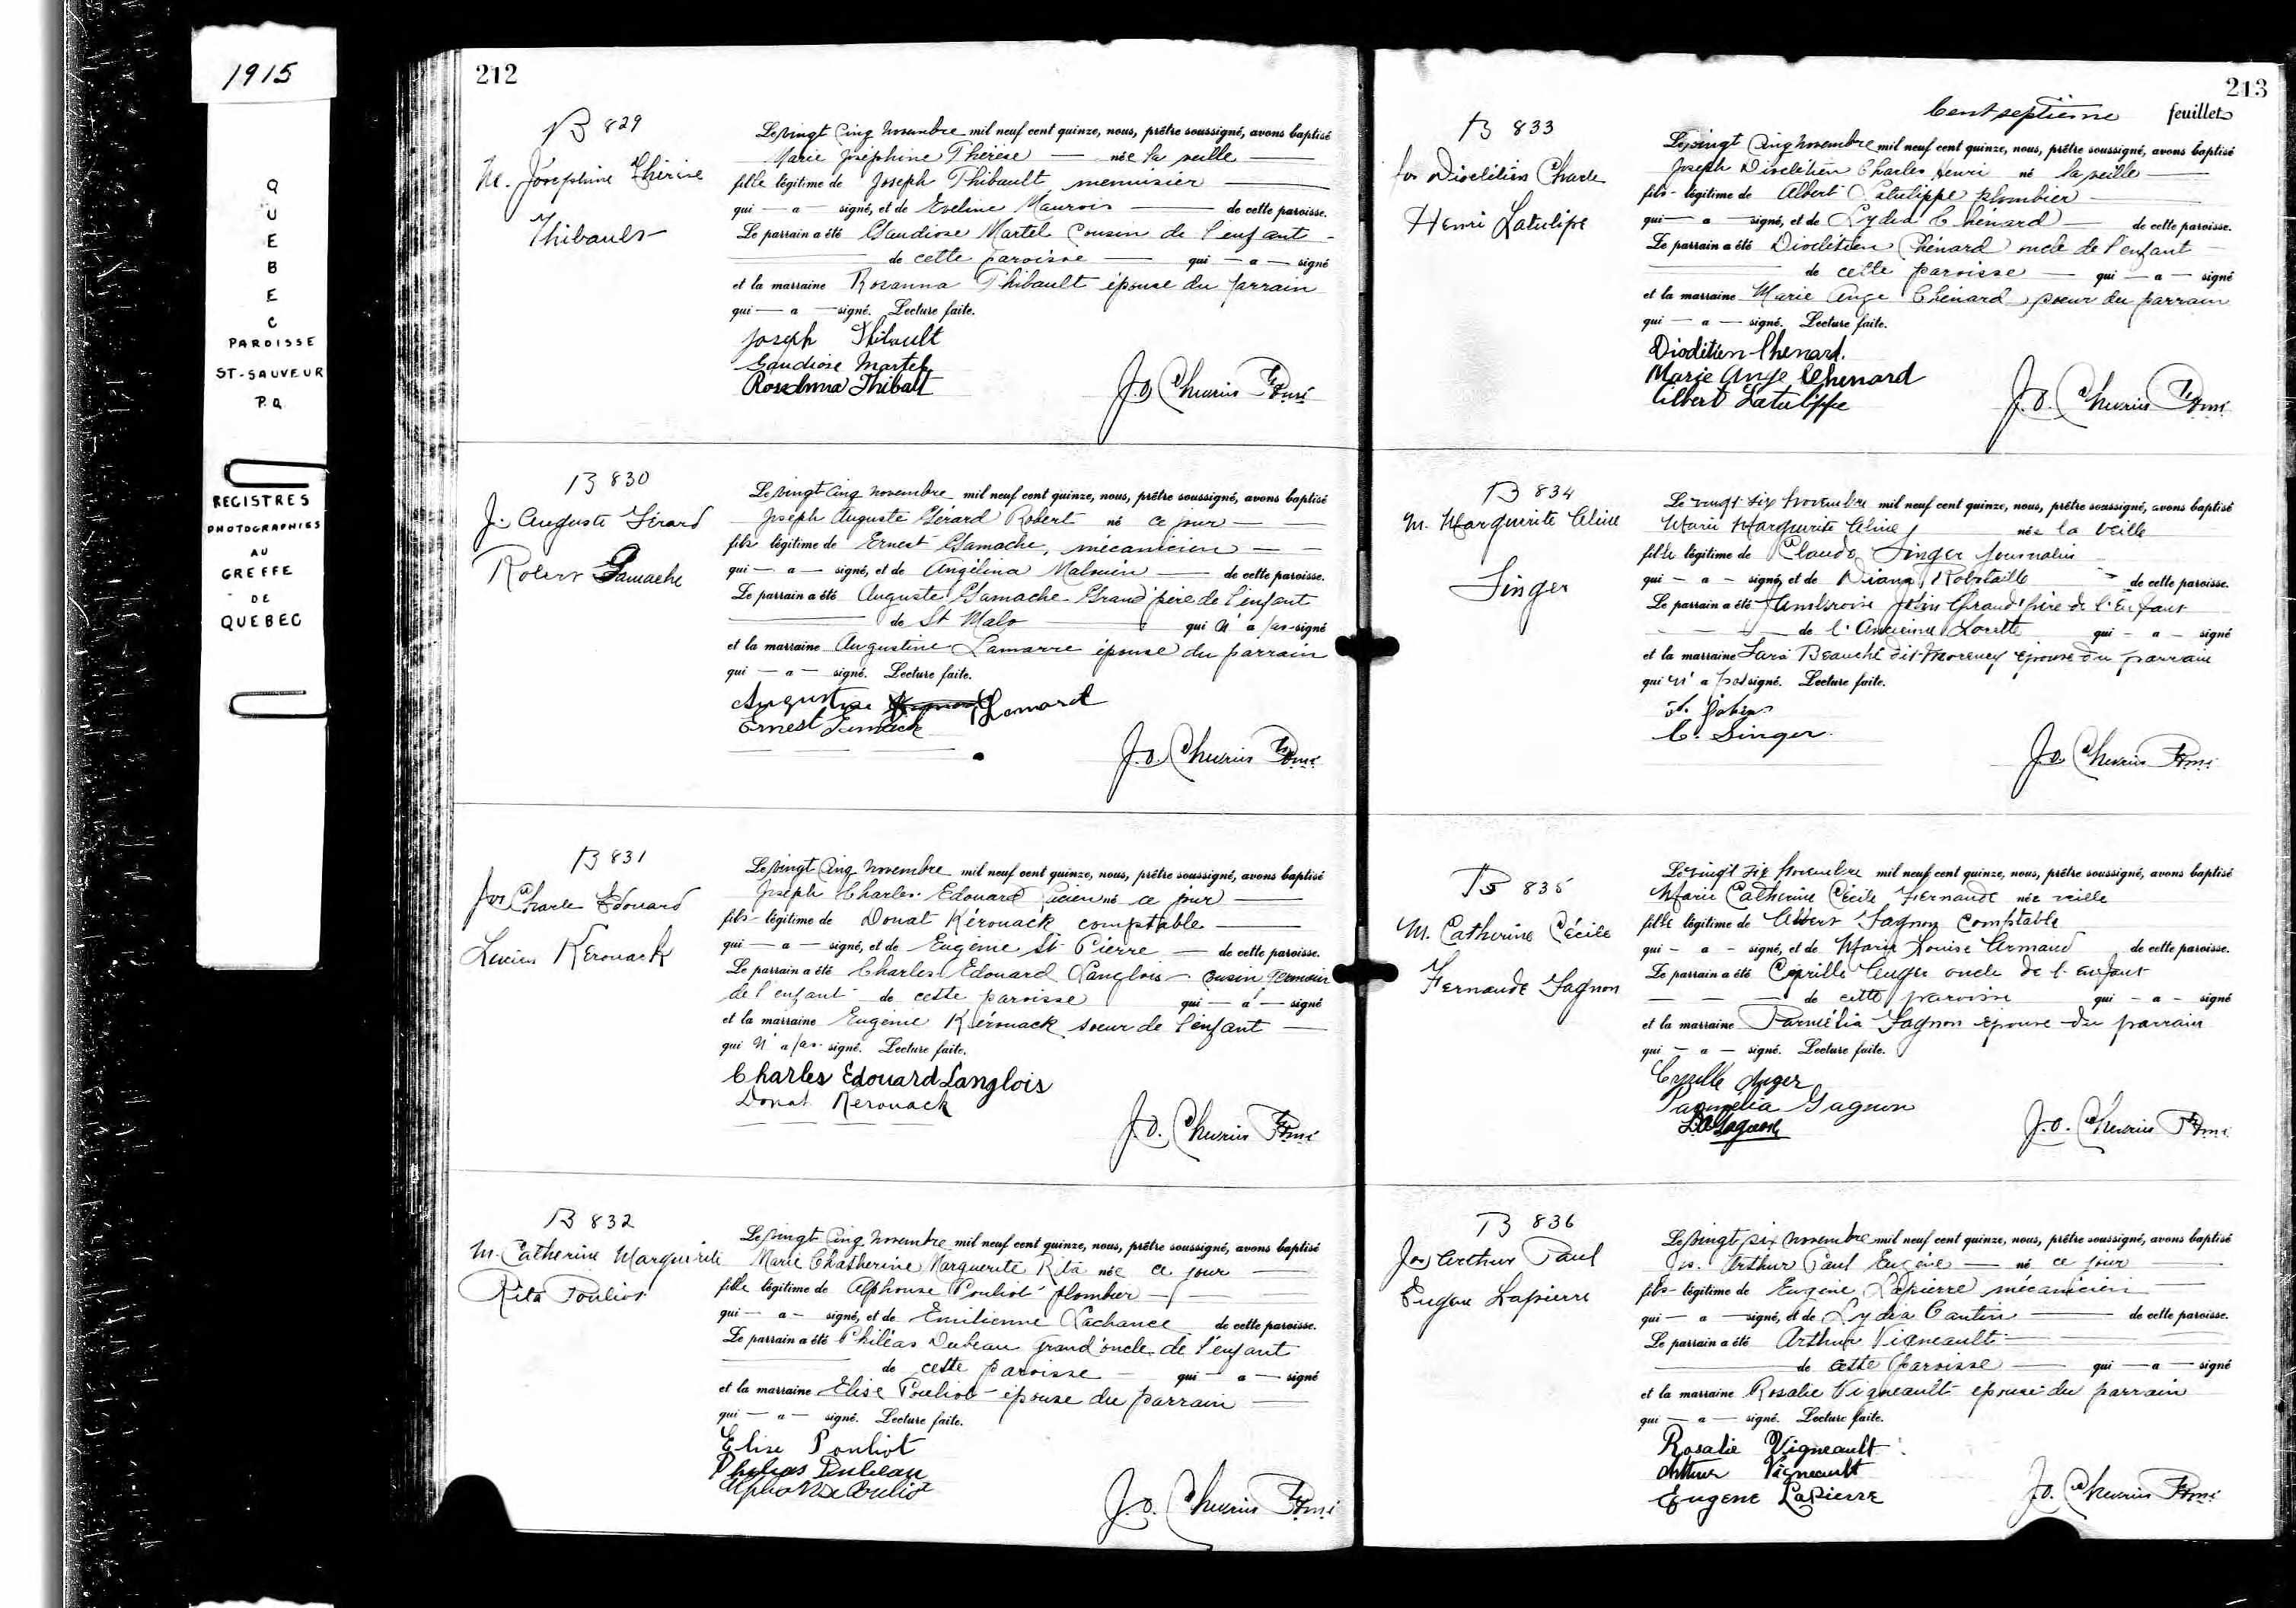 1915
QUEBEC
PAROISSE
ST-SAUVEUR
P.Q.
REGISTRES
PHOTOGRAPHIES
AU
GREFFE
DE
QUEBEC
212
B 829
M. Joséphine Thérèse
Thibault
Le vingt cinq novembre mil neuf cent quinze, nous, prêtre soussigné, avons baptisé
Marie Joséphine Thérèse — née la veille —
fille légitime de Joseph Thibault, menuisier —
qui — a — signé, et de Eveline Maurois — de cette paroisse.
Le parrain a été Gaudiose Martel cousin de l'enfant -
de cette paroisse — qui — a — signé
et la marraine Rosanna Thibault épouse du parrain
qui — a — signé. Lecture faite.
Joseph Thibault
Gaudiose Martel
RoseAnna Thibalt
J.O.
B 830
J. Auguste Gérard
Robert Gamache
Le vingt cinq novembre mil neuf cent quinze, nous, prêtre soussigné, avons baptisé
Joseph Auguste Gérard Robert né ce jour —
fils légitime de Ernest Gamache, mécanicien —
qui — a — signé, et de Angélina Malouin — de cette paroisse.
Le parrain a été Auguste Gamache Grand'père de l'enfant
de St Malo qui n'a pas signé
et la marraine Augustine Lamarre épouse du parrain
qui — a — signé. Lecture faite.
Augustine
Ernest
J.O.
B 831
Jos Charle Edouard
Lucien Kérouack
Le vingt cinq novembre mil neuf cent quinze, nous, prêtre soussigné, avons baptisé
Joseph Charles Edouard Lucien né ce jour —
fils légitime de Donat Kérouack comptable —
qui — a — signé, et de Eugénie St Pierre — de cette paroisse.
Le parrain a été Charles Edouard Langlois - cousin germain
de l'enfant de cette paroisse qui — a — signé
et la marraine Eugénie Kérouack soeur de l'enfant —
qui n'a pas signé. Lecture faite.
Charles Edouard Langlois
Donat Kerouack
J.O.
B 832
M. Catherine Marguerite
Rita Pouliot
Le vingt cinq novembre mil neuf cent quinze, nous, prêtre soussigné, avons baptisé
Marie Chatherine Marguerite Rita née ce jour —
fille légitime de Alphonse Pouliot plombier —
qui — a — signé, et de Emilienne Lachance de cette paroisse.
Le parrain a été Philéas Dubeau grand'oncle de l'enfant
de cette paroisse — qui — a — signé
et la marraine Elise Pouliot - épouse du parrain —
qui — a — signé. Lecture faite.
Elise Pouliot
Phileas Dubeau
Alphonse Pouliot
J.O.
213
Cent septième feuillet
B 833
Jos Dioclétien Charle
Henri Latulipe
Le vingt cinq novembre mil neuf cent quinze, nous, prêtre soussigné, avons baptisé
Joseph Dioclétien Charles Henri né la veille —
fils légitime de Albert Latulippe plombier —
qui — a — signé, et de Lydia Chénard — de cette paroisse.
Le parrain a été Dioclétien Chénard oncle de l'enfant —
de cette paroisse — qui — a — signé
et la marraine Marie Ange Chénard soeur du parrain
qui — a — signé. Lecture faite.
Diodétien Chenard.
Marie Ange Chenard
Albert Latulippe
J.O.
B 834
M. Marguerite Aline
Singer
Le vingt six Novembre mil neuf cent quinze, nous, prêtre soussigné, avons baptisé
Marie Marguerite Aline née la veille
fille légitime de Claude Singer journalier
qui - a - signé, et de Diana Robitaille de cette paroisse.
Le parrain a été Ambroise Grand'père de l'Enfant
de l'Ancienne Lorette qui - a - signé
et la marraine Sara Beauché dit Morency épouse du parrain
qui n'a pas signé. Lecture faite.
C. Singer.
J.O.
B 835
M. Catherine Cécile
Fernande Gagnon
Le vingt six Novembre mil neuf cent quinze, nous, prêtre soussigné, avons baptisé
Marie Catherine Cécile Fernande née veille
fille légitime de Albert Gagnon Comptable
qui - a - signé, et de Marie Louise Armand de cette paroisse.
Le parrain a été Cyrille Auger oncle de l'Enfant
de cette paroisse qui - a - signé
et la marraine Parmélia Gagnon Epouse du parrain
qui - a - signé. Lecture faite.
Cyrille Auger
Parmelia Gagnon
J.O.
B 836
Jos Arthur Paul
Eugène Lapierre
Le vingt six novembre mil neuf cent quinze, nous, prêtre soussigné, avons baptisé
Jos. Arthur Paul Eugène — né ce jour —
fils légitime de Eugène Lapierre mécanicien —
qui — a — signé, et de Lydia Cantin — de cette paroisse.
Le parrain a été Arthur Vigneault —
de cette paroisse — qui — a — signé
et la marraine Rosalie Vigneault épouse du parrain
qui — a — signé. Lecture faite.
Rosalie Vigneault
Arthur Vigneault
Eugene Lapierre
J.O.